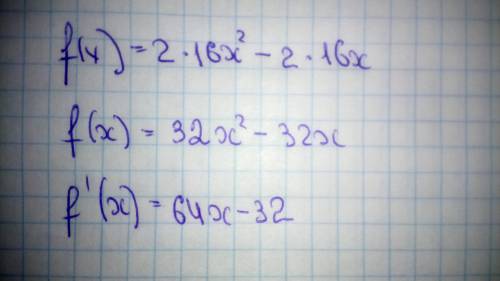 f(x) = 2·16x² - 2·16x
f(x) = 32x² - 32x
f'(x) = 64x - 32